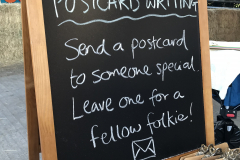 POSTCARD WRITING
Send a postcard
to someone special.
Leave one for a
fellow folkie!